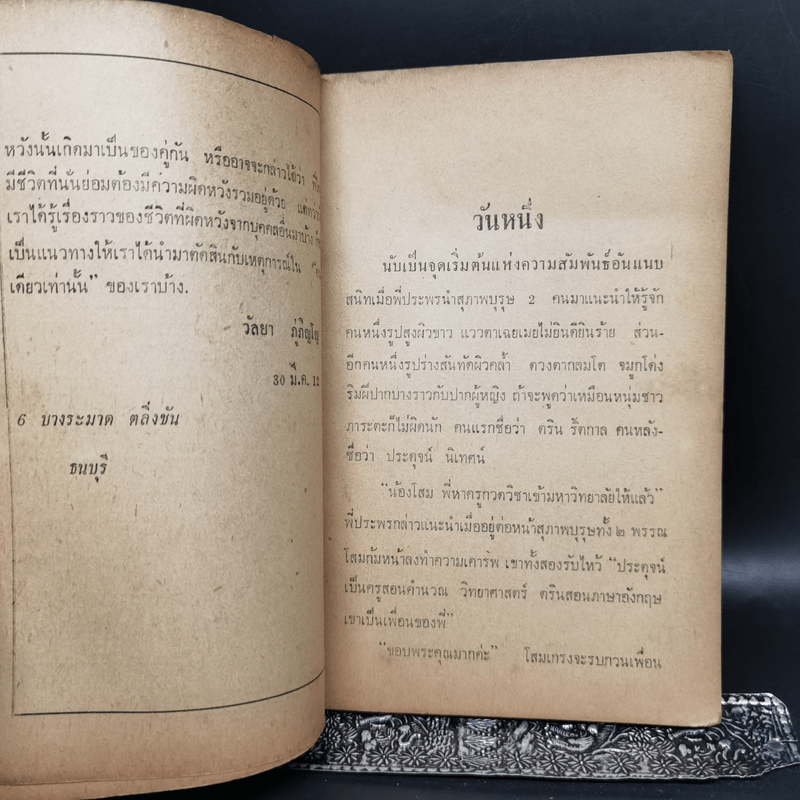 หวังนั้นเกิดมาเป็นของคู่กัน หรืออาจจะกล่าวได้ว่า
มีชีวิตที่นั่นย่อมต้องมีความผิดหวังรวมอยู่ด้วย
เราได้รู้เรื่องราวของชีวิตที่ผิดหวังจากบุคคลอื่นมาบ้าง
เป็นแนวทางให้เราได้นำมาตัดสินกับเหตุการณ์ใน
เดียวเท่านั้น” ของเราบ้าง.
วัลยา
30 มี.ค. 12
6 บางระมาด ตลิ่งชัน
ธนบุรี
วันหนึ่ง
นับเป็นจุดเริ่มต้นแห่งความสัมพันธ์อันแนบ
สนิทเมื่อพี่ประพรนำสุภาพบุรุษ 2 คนมาแนะนำให้รู้จัก
คนหนึ่งรูปสูงผิวขาว แววตาเฉยเมยไม่ยินดียินร้าย ส่วน-
อีกคนหนึ่งรูปร่างสันทัดผิวคล้ำ ดวงตากลมโต จมูกโด่ง
ริมฝีปากบางราวกับปากผู้หญิง ถ้าจะพูดว่าเหมือนหนุ่มชาว
ภาระตะก็ไม่ผิดนัก คนแรกชื่อว่า ตริน รัตกาล คนหลัง-
ชื่อว่า ประดุจน์ นิเทศน์
“น้องโสม พี่หาครูกวดวิชาเข้ามหาวิทยาลัยให้แล้ว”
พี่ประพรกล่าวแนะนำเมื่ออยู่ต่อหน้าสุภาพบุรุษทั้ง ๒ พรรณ
โสมก้มหน้าลงทำความเคารพ เขาทั้งสองรับไหว้ “ประดุจน์
เป็นครูสอนคำนวณ วิทยาศาสตร์ ตรินสอนภาษาอังกฤษ
เขาเป็นเพื่อนของพี่”
“ขอบพระคุณมากค่ะ” โสมเกรงจะรบกวนเพื่อน